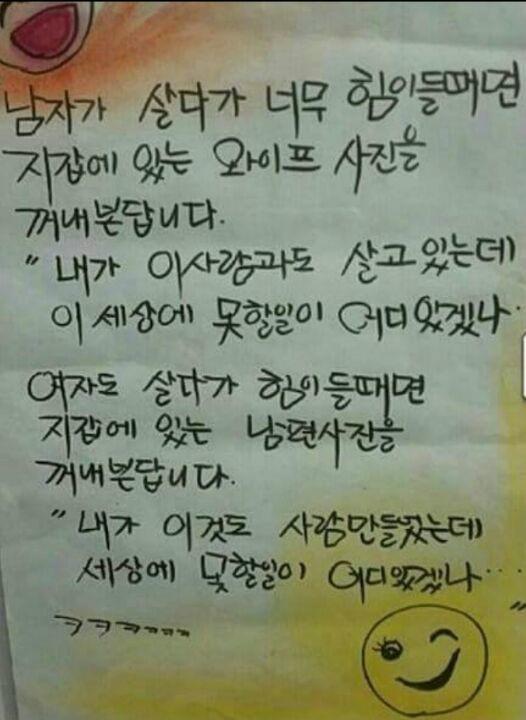 남자가 살다가 너무 힘이들때면
지갑에 있는 와이프 사진을
꺼내본답니다.
"내가 이사람과도 살고있는데
이 세상에 못할일이 어디있겠나‥
여자도 살다가 힘이들때면
지갑에 있는 남편사진을
꺼내본답니다.
"내가 이것도 사람만들었는데
세상에 못할일이 어디있겠나…"
ㅋㅋㅋㅋㅋㅋㅋ